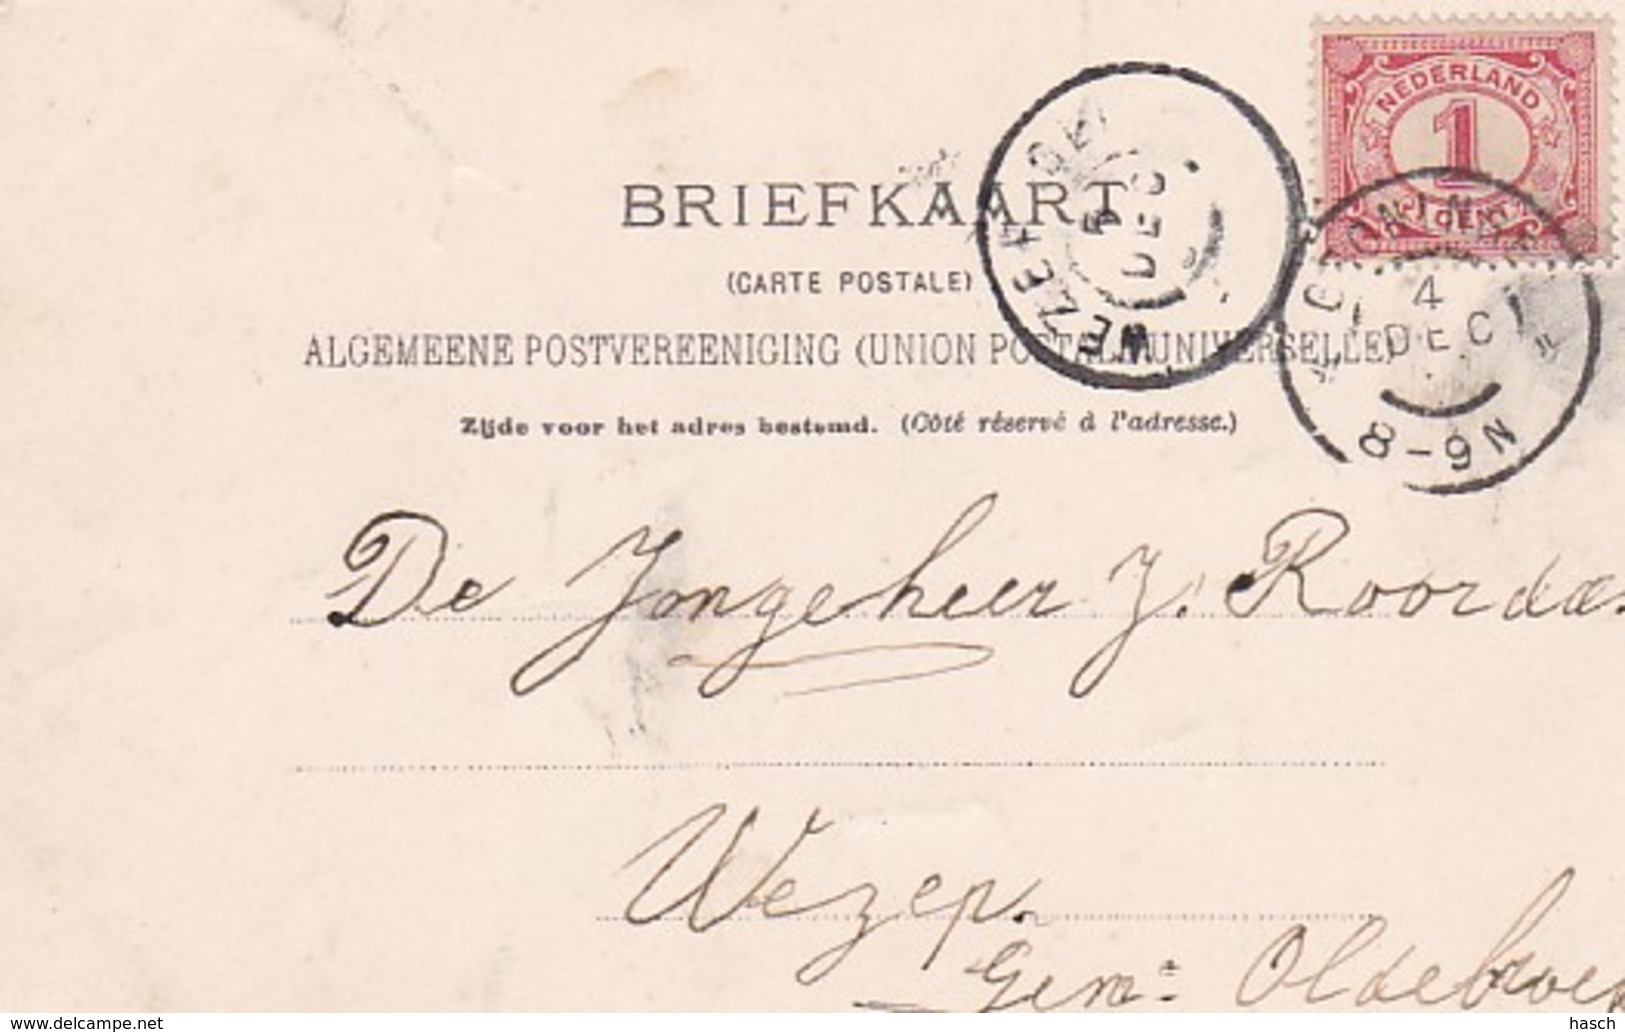 NEDERLAND
1
CENT
BRIEFKAART
(CARTE POSTALE)
ALGEMEENE POSTVEREENIGING (UNION POSTALE UNIVERSELLE)
Zijde voor het adres bestemd. (Côté réservé à l'adresse.)
WEZEP
5
DEC
GRONINGEN
4
DEC
8-9N
De Jongeheer J. Roorda.
Wezep.
Gem: Oldebroek
delcampe.net
hasch